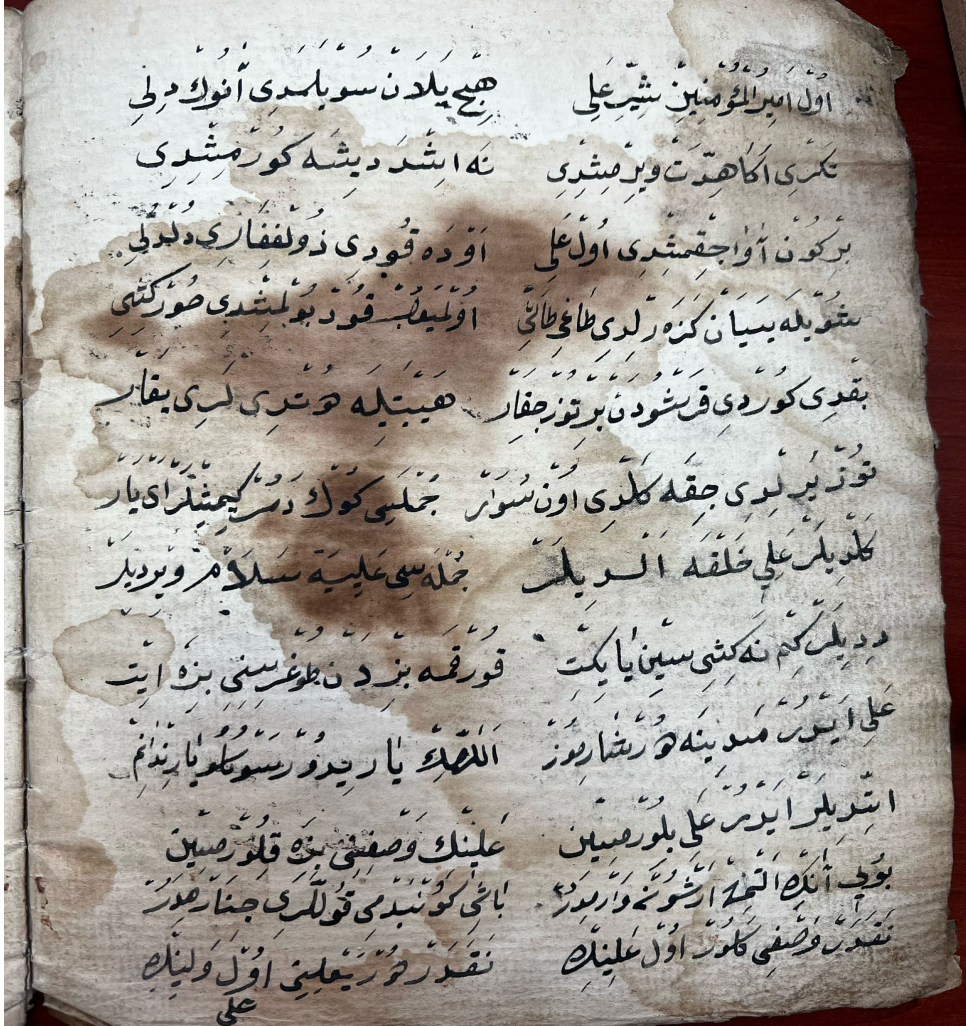 اول امير المؤمنين شير علی هيچ يلان سويلمدی آنوك دلی
تكری اكا هدت ويرمشدی نه ايشد ديشه كورمشدی
بر كون آوا چقمشدی اول علی اوده قودی ذولفقاری دلدلی
شويله يبيان كزه رلدی طاغی طاشی قودبولمشدی
بقدی كوردی قرشودن بر توز چقار هيبتيله يرلری يقار
توز يرلدی چقه كلدی اون سوار جملسی كوك دمر كيمشلر ای يار
كلديلر علی خلقه الديلر جمله سی عليیه سلام ويرديلر
دديلر كم نه كشی سين يا يكت قورقمه بزدن طوغرسنی بزه ايت
علی ايدر مدينه هر شارمز اللهك ياريدور رسولو يارندانم
ايتديلر ايدر علی بلورمسين علينك وصفنی بزه قلورمسين
بويی آنك التمش ارشونه وارمدر باشی كونبدمی قوللری چنارمدر
نقدر وصفی كلور اول علينك نقدر هنر اول ولينك
علی